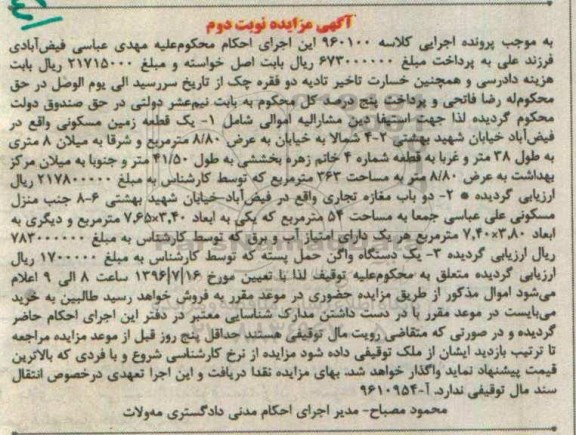 آگهی مزایده نوبت دوم
به موجب پرونده اجرایی کلاسه ۹۶۰۱۰۰ این اجرای احکام محکوم‌علیه مهدی عباسی فیض‌آبادی
فرزند علی به پرداخت مبلغ ۶۷۳۰۰۰۰۰۰ ریال بابت اصل خواسته و مبلغ ۲۱۷۱۵۰۰۰ ریال بابت
هزینه دادرسی و همچنین خسارت تاخیر تادیه دو فقره چک از تاریخ سررسید الی یوم الوصل در حق
محکوم‌له رضا فاتحی و پرداخت پنج درصد کل محکوم به بابت نیم‌عشر دولتی در حق صندوق دولت
محکوم گردیده لذا جهت استیفا دین مشارالیه اموالی شامل ۱- یک قطعه زمین مسکونی واقع در
فیض‌آباد خیابان شهید بهشتی ۲-۴ شمالا به خیابان به عرض ۸/۸۰ مترمربع و شرقا به میلان ۸ متری
به طول ۳۸ متر و غربا به قطعه شماره ۴ خانم زهره بخششی به طول ۴۱/۵۰ متر و جنوبا به میلان مرکز
بهداشت به عرض ۸/۸۰ متر به مساحت ۳۶۳ مترمربع که توسط کارشناس به مبلغ ۲۱۷۸۰۰۰۰۰ ریال
ارزیابی گردیده * ۲- دو باب مغازه تجاری واقع در فیض‌آباد خیابان شهید بهشتی ۶-۸ جنب منزل
مسکونی علی عباسی جمعا به مساحت ۵۴ مترمربع که یکی به ابعاد ۳،۴۰×۷،۶۵ مترمربع و دیگری به
ابعاد ۳،۸۰×۷،۴۰ مترمربع هر یک دارای امتیاز آب و برق که توسط کارشناس به مبلغ ۷۸۳۰۰۰۰۰۰
ریال ارزیابی گردیده ۳- یک دستگاه واگن حمل پسته که توسط کارشناس به مبلغ ۱۷۰۰۰۰۰ ریال
ارزیابی گردیده متعلق به محکوم‌علیه توقیف لذا با تعیین مورخ ۱۳۹۶/۷/۱۶ ساعت ۸ الی ۹ اعلام
می‌شود اموال مذکور از طریق مزایده حضوری در موعد مقرر به فروش خواهد رسید طالبین به خرید
می‌بایست در موعد مقرر با در دست داشتن مدارک شناسایی معتبر در دفتر این اجرای احکام حاضر
گردیده و در صورتی که متقاضی رویت مال توقیفی هستند حداقل پنج روز قبل از موعد مزایده مراجعه
تا ترتیب بازدید ایشان از ملک توقیفی داده شود مزایده از نرخ کارشناسی شروع و با فردی که بالاترین
قیمت پیشنهاد نماید واگذار خواهد شد. بهای مزایده نقدا دریافت و این اجرا تعهدی درخصوص انتقال
سند مال توقیفی ندارد. آ-۹۶۱۰۹۵۴
محمود مصباح- مدیر اجرای احکام مدنی دادگستری مه‌ولات